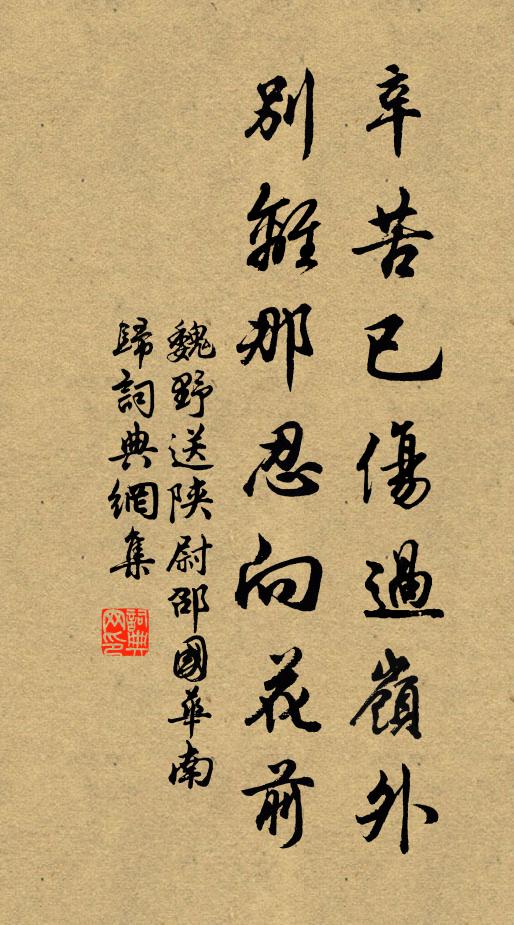 辛苦已傷過嶺外
別離那忍向花前
魏野送陝尉邵國華南
歸詞典網集
詞典
网印